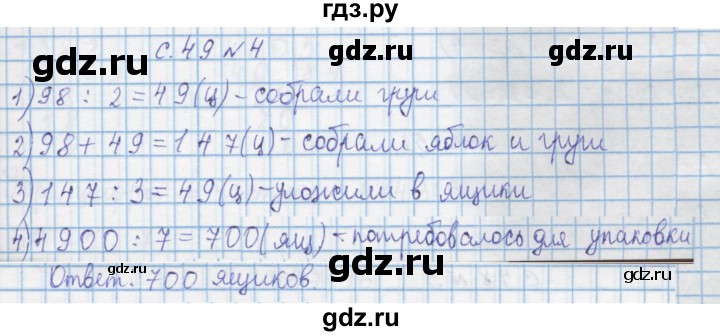 гдз.ру
gdz.ru gdz.ru
с. 49 №4
1) 98 : 2 = 49 (ц) - собрали груш
gdz.ru gdz.ru
2) 98 + 49 = 147 (ц) - собрали яблок и груш
gdz.ru gdz.ru
3) 147 : 3 = 49 (ц) - уложили в ящики
gdz.ru gdz.ru
4) 4900 : 7 = 700 (ящ) - потребовалось для упаковки
gdz.ru gdz.ru gdz.ru
Ответ: 700 ящиков.